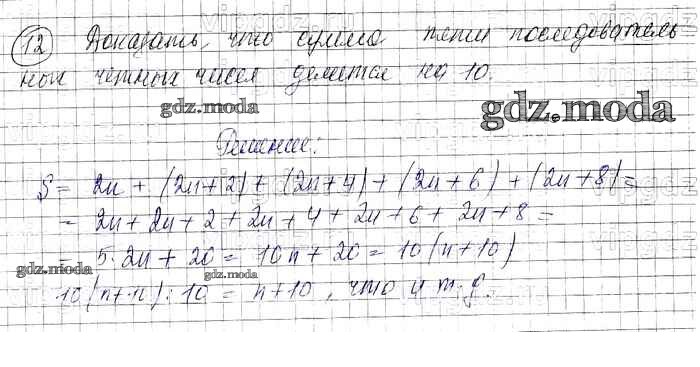 12 Доказать, что сумма пяти последователь
ных четных чисел делится на 10.
gdz.moda
gdz.moda
Решение:
S = 2n + (2n+2) + (2n+4) + (2n+6) + (2n+8) =
= 2n + 2n + 2 + 2n + 4 + 2n + 6 + 2n + 8 =
5·2n + 20 = 10n + 20 = 10(n+10)
gdz.moda
gdz.moda
: 10 = n+10, что и т.д.